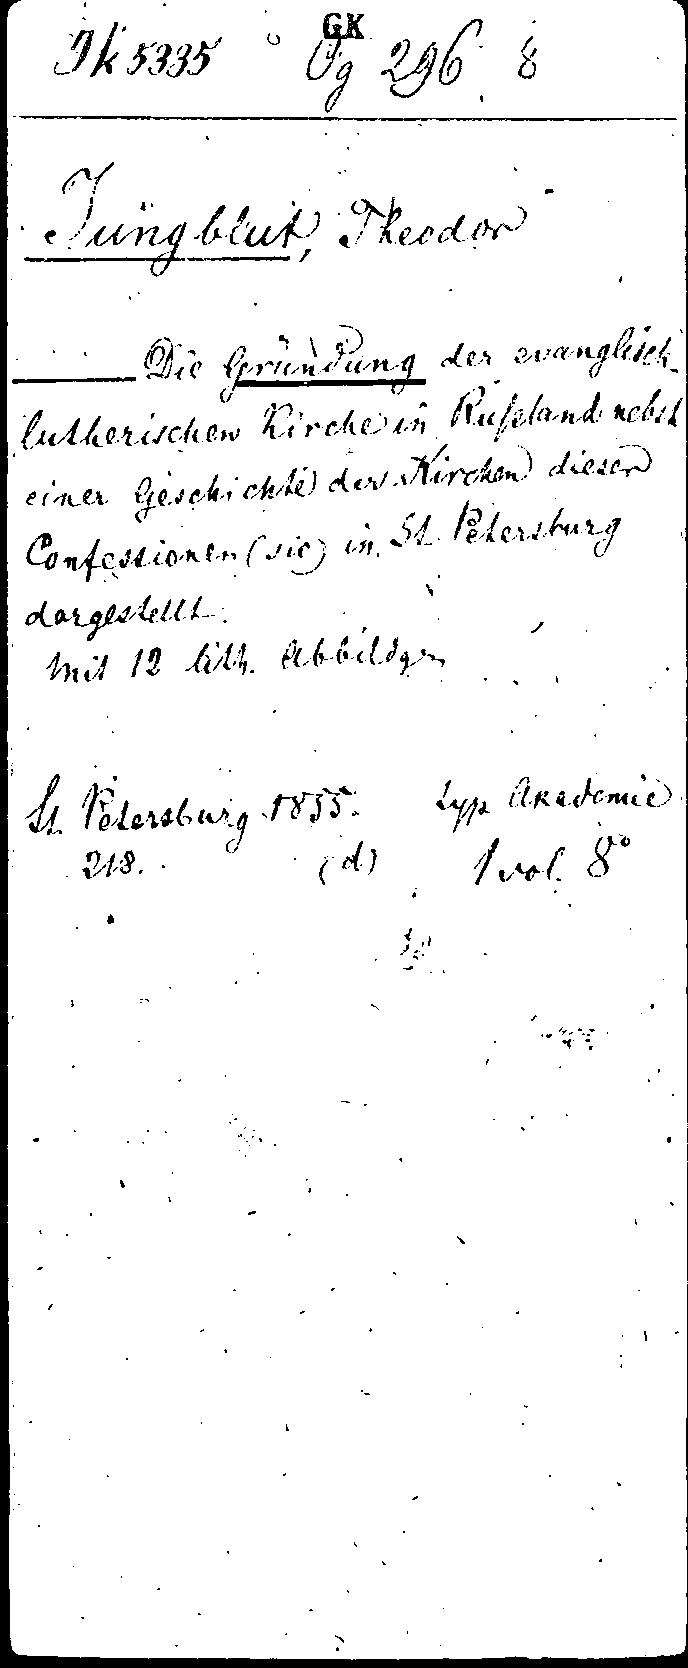 GK
Ik 5335 Og 296 8
Jungblut, Theodor
Die Gründung der evanglisch-
lutherischen Kirche in Rußland nebst
einer Geschichte der Kirchen dieser
Confessionen (sic) in St. Petersburg
dargestellt.
Mit 12 lith. Abbildgn
St. Petersburg 1855. typ Akademie
218. (d) 1 vol. 8°